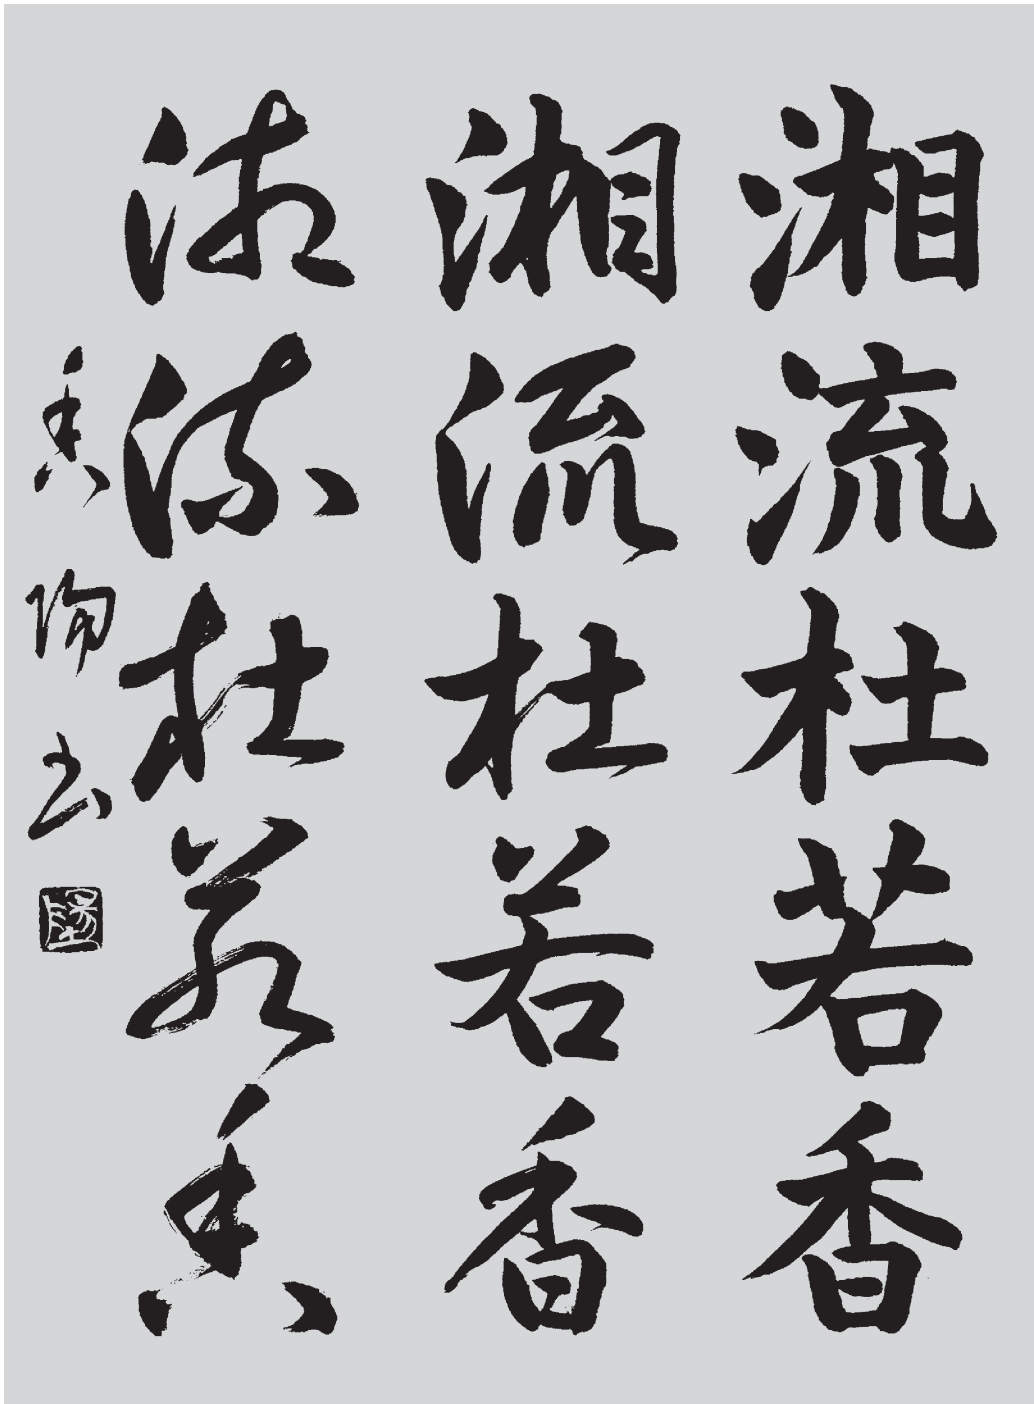 湘流杜若香
湘流杜若香
湘流杜若香
香陽書